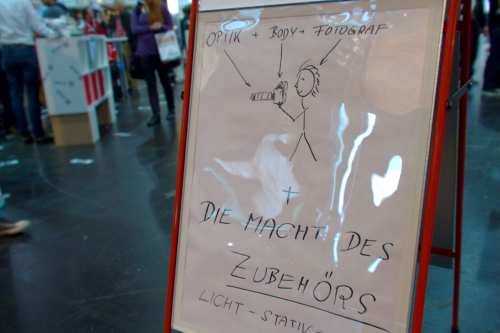 OPTIK + BODY + FOTOGRAF
+
DIE MACHT DES
ZUBEHÖRS
LICHT - STATIV